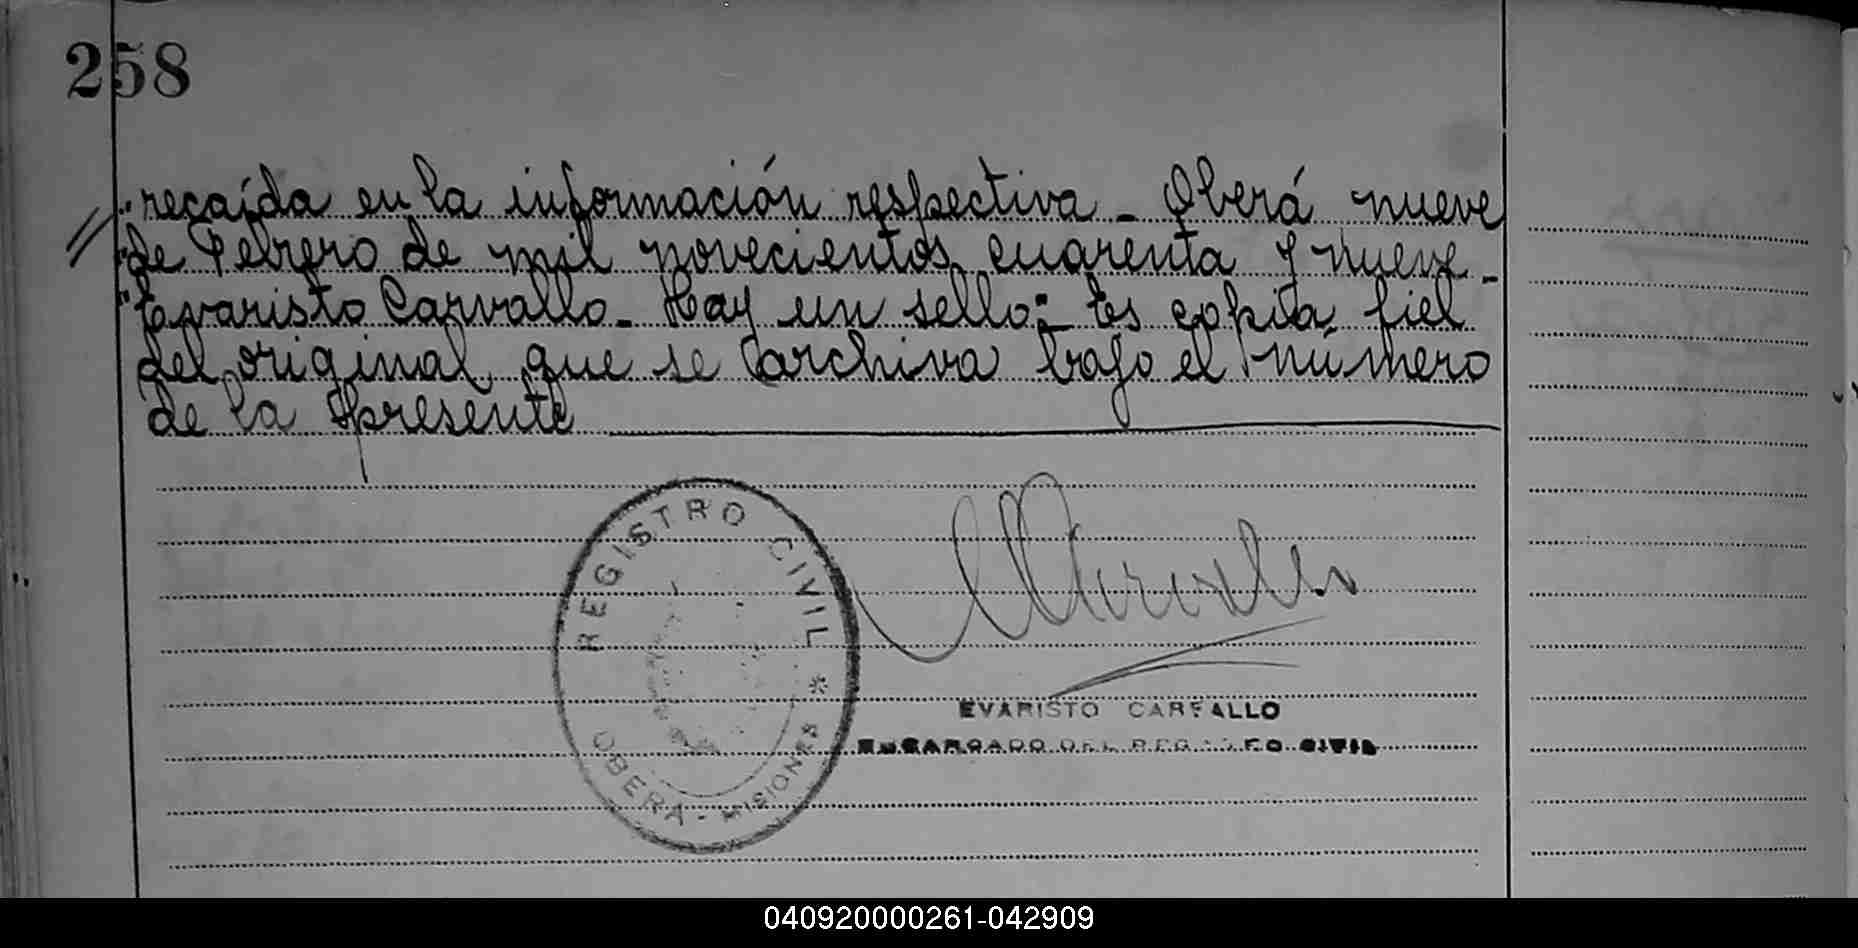 258
"recaída en la información respectiva - Oberá nueve
"de Febrero de mil novecientos cuarenta y nueve -
"Evaristo Carvallo - Hay un sello: - Es copia fiel
del original que se archiva bajo el número
de la presente
REGISTRO CIVIL *
OBERÁ - MISIONES
EVARISTO CARVALLO
ENCARGADO DEL REGISTRO CIVIL
040920000261-042909